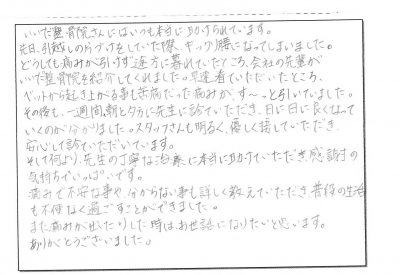 いいだ整骨院さんにはいつも本当に助けられています。
先日、引越しの片づけをしていた際、ギックリ腰になってしまいました。
どうしても痛みが引けず途方に暮れていたところ、会社の先輩が
いいだ整骨院を紹介してくれました。早速看ていただいたところ、
ベットから起き上がる事も苦痛だった痛みが、す〜っと引いていました。
その後も、一週間、朝と夕方に先生に診ていただき、日に日に良くなって
いくのが分かりました。スタッフさんも明るく、優しく接していただき、
安心して診ていただいています。
そして何より、先生の丁寧な治療に本当に助けていただき、感謝の
気持ちでいっぱいです。
痛みで不安な事や、分からない事も詳しく教えていただき普段の生活
も不便なく過ごすことができました。
また痛みが出たりした時は、お世話になりたいと思います。
ありがとうございました。